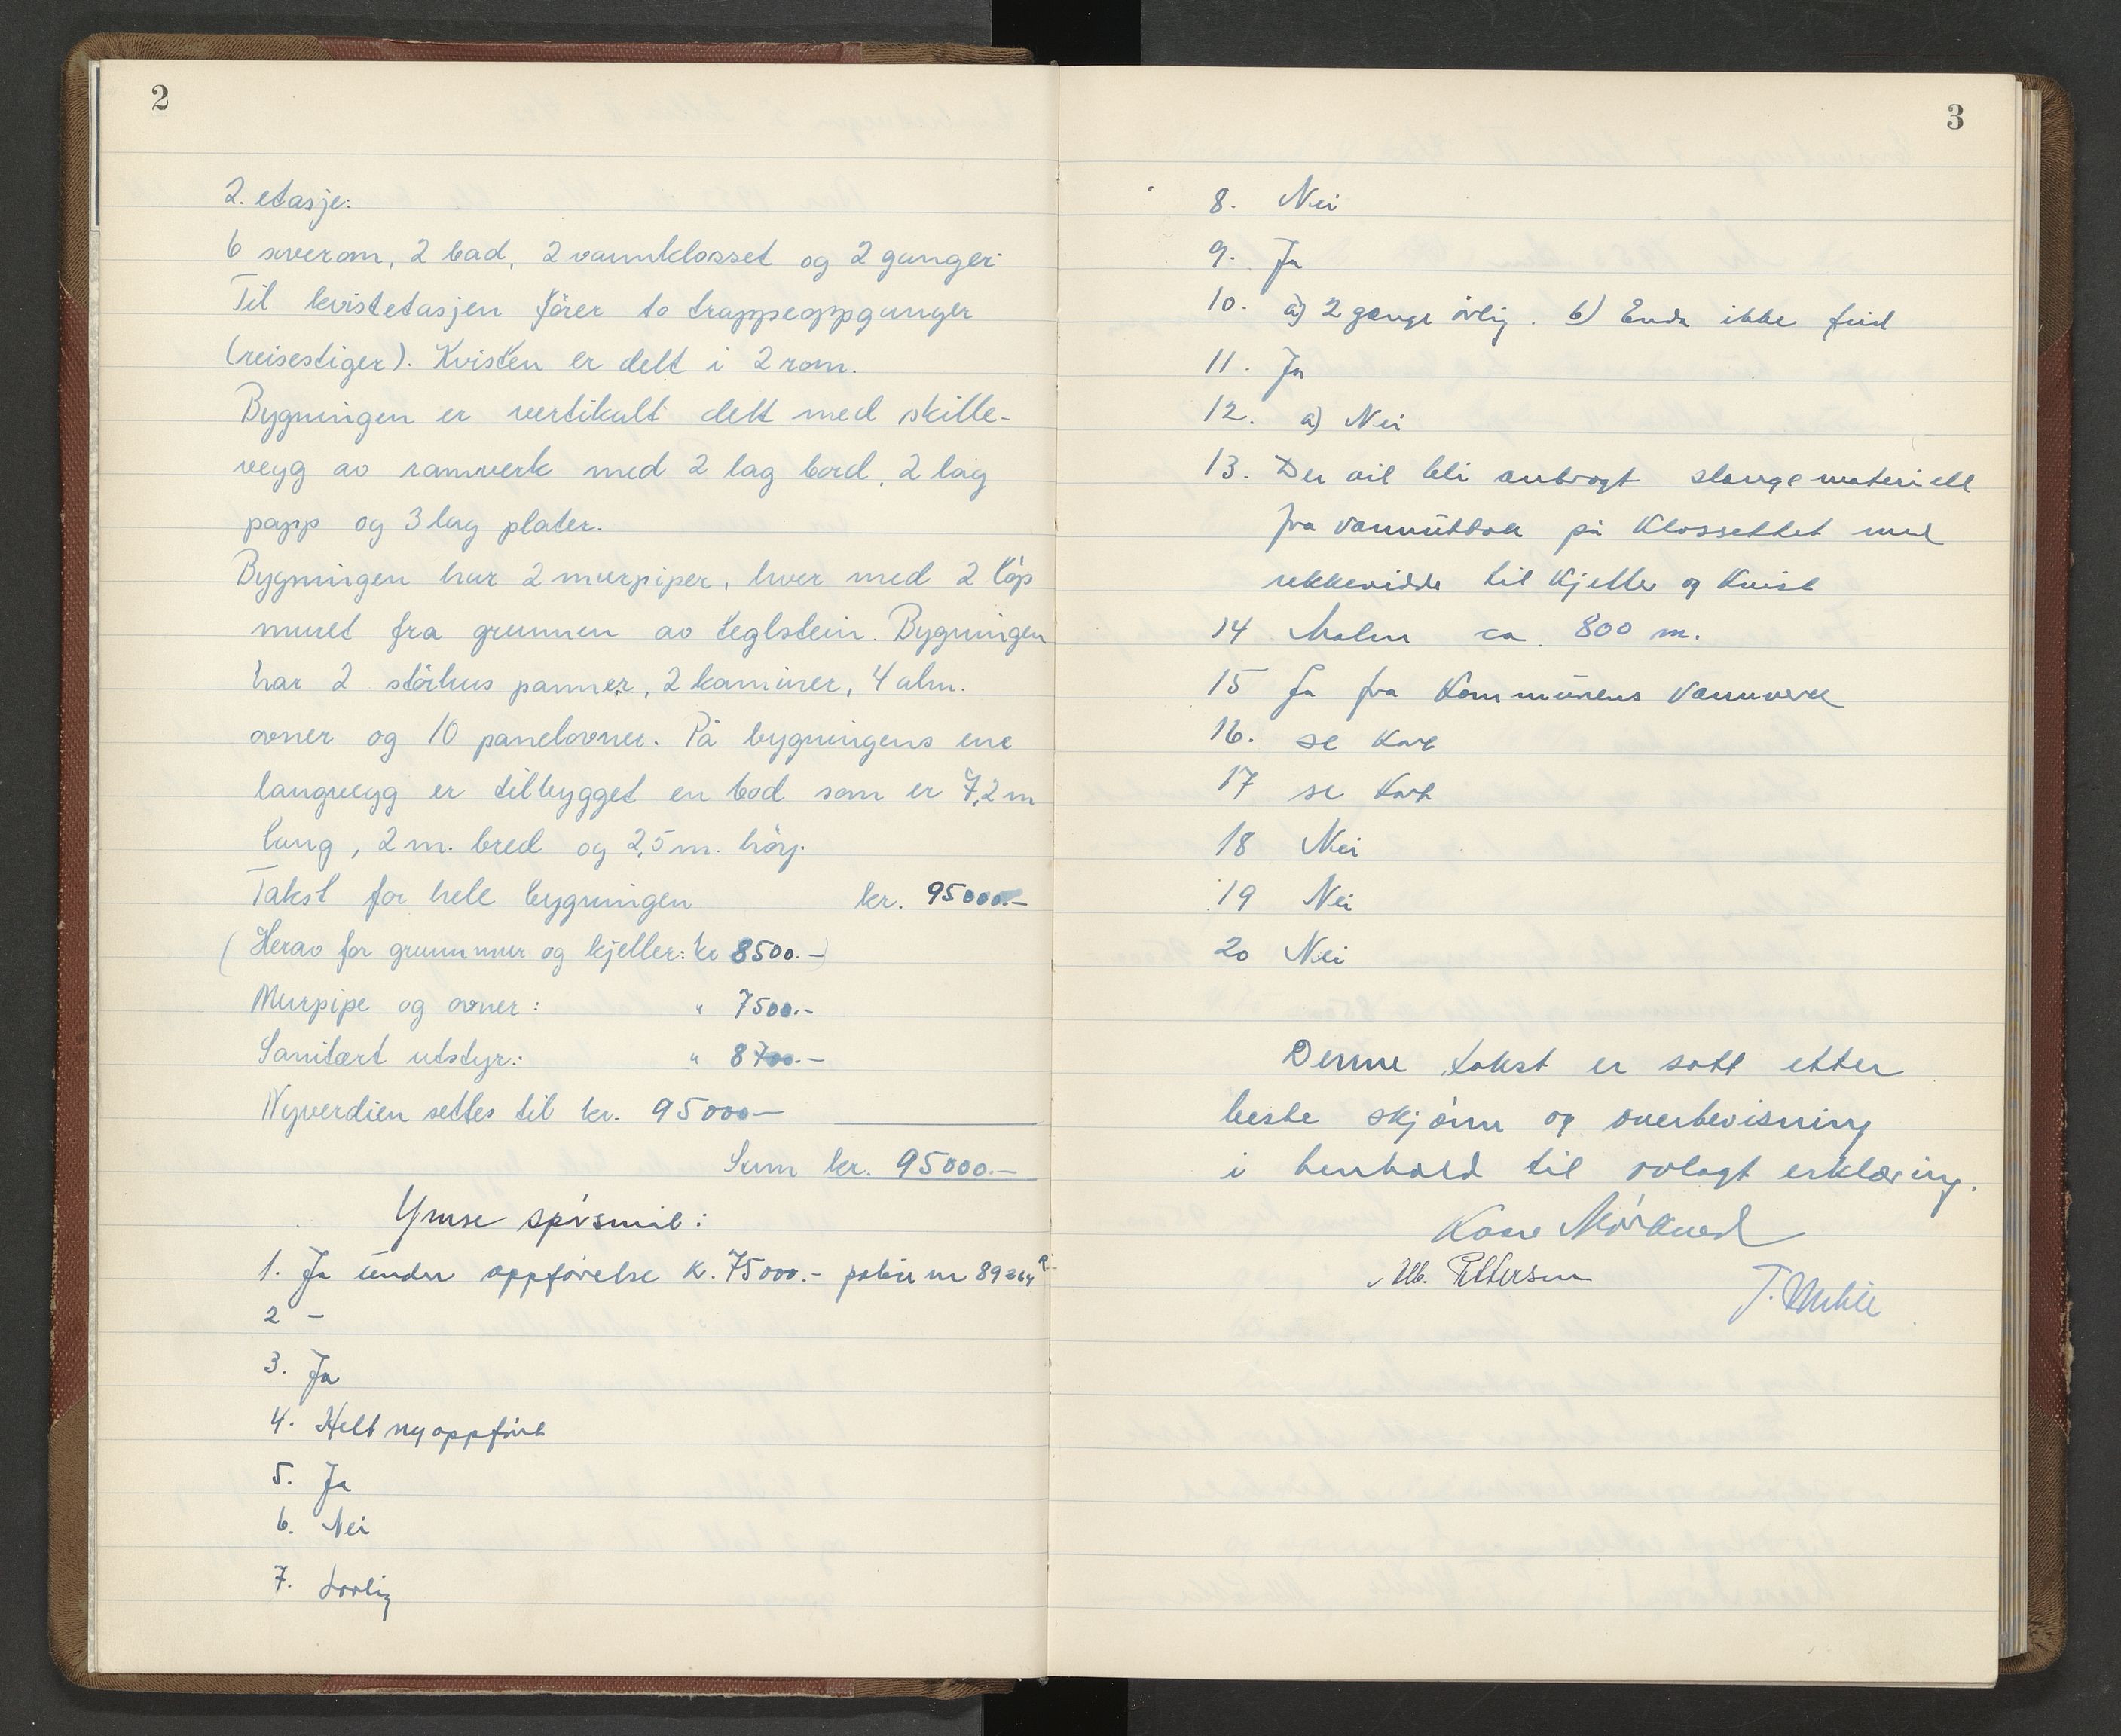 2
2. etasje:
6 soverom, 2 bad, 2 vannklosset og 2 ganger.
Til kvistetasjen fører to trappeoppganger
(reisestiger). Kvisten er delt i 2 rom.
Bygningen er vertikalt delt med skille-
vegg av ramverk med 2 lag bord, 2 lag
papp og 3 lag plater.
Bygningen har 2 murpiper, hver med 2 løp
muret fra grunnen av teglstein. Bygningen
har 2 störhus panner, 2 kaminer, 4 alm.
ovner og 10 panelovner. På bygningens ene
langvegg er tilbygget en bod som er 7,2 m
lang, 2 m. bred og 2,5 m. høy.
Takst for hele bygningen kr. 95000.-
(Herav for grunnmur og kjeller: kr 8500.-)
Murpipe og ovner: " 7500.-
Sanitært utstyr: " 8700.-
Nyverdien settes til kr. 95000-
Sum kr. 95000.-
Ymse spørsmål:
1. Ja under oppførelse k. 75000.- polise nr 89264
2 -
3. Ja
4. Helt ny oppført
5. Ja
6. Nei
7. Lovlig
3
8. Nei
9. Ja
10. a) 2 gange årlig. b) Enda ikke feid
11. Ja
12. a) Nei
13. Der vil bli anbragt slangemateriell
fra vannuttak på Klossettet med
rekkevidde til Kjeller og Kvist
14 Malm ca. 800 m.
15 Ja fra Kommunens Vannverk
16. se Kart
17 se Kart
18 Nei
19 Nei
20 Nei
Denne takst er satt etter
beste skjønn og overbevisning
i henhold til avlagt erklæring.
Kaare
Alb. Pettersen
T.